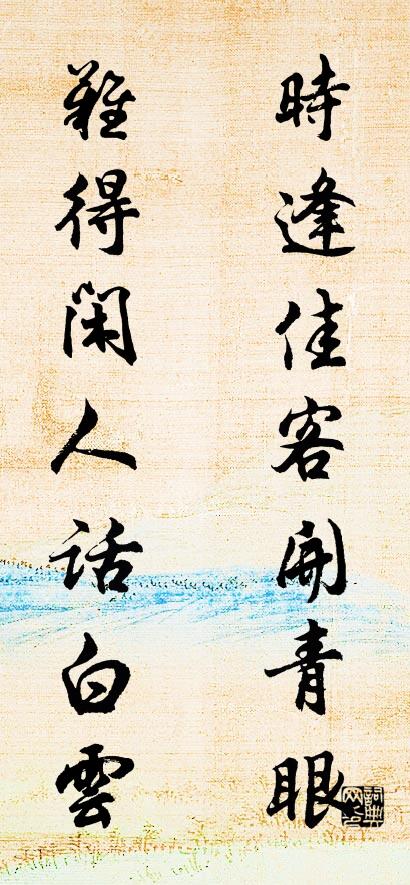 時逢佳客開青眼
難得閑人話白雲
詞典网